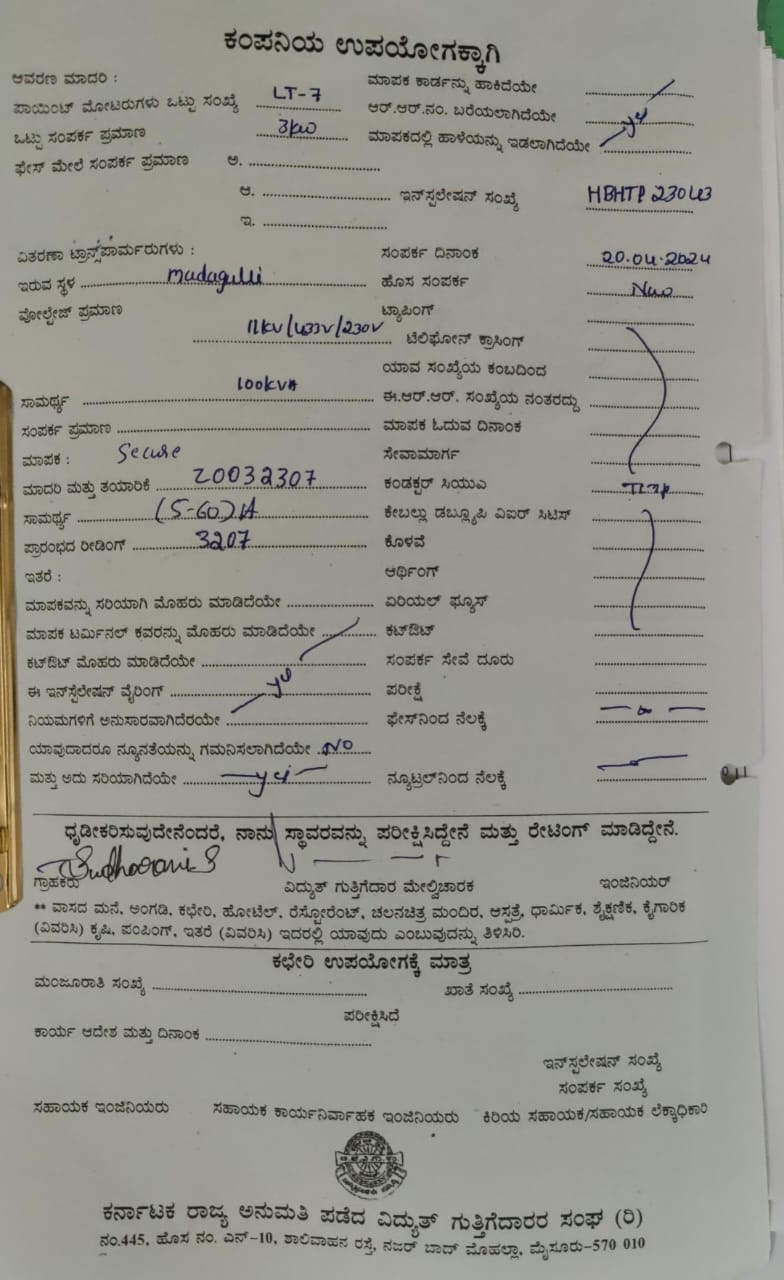 ಕಂಪನಿಯ ಉಪಯೋಗಕ್ಕಾಗಿ
ಆವರಣ ಮಾದರಿ : ಮಾಪಕ ಕಾರ್ಡನ್ನು ಹಾಕಿದೆಯೇ
ಪಾಯಿಂಟ್ ಮೋಟರುಗಳು ಒಟ್ಟು ಸಂಖ್ಯೆ LT-7 ಆರ್.ಆರ್.ನಂ. ಬರೆಯಲಾಗಿದೆಯೇ
ಒಟ್ಟು ಸಂಪರ್ಕ ಪ್ರಮಾಣ 3kw ಮಾಪಕದಲ್ಲಿ ಹಾಳೆಯನ್ನು ಇಡಲಾಗಿದೆಯೇ
ಫೇಸ್ ಮೇಲೆ ಸಂಪರ್ಕ ಪ್ರಮಾಣ ಅ.
ಆ. ಇನ್‌ಸ್ಪಲೇಷನ್ ಸಂಖ್ಯೆ HBHTP 23043
ಇ.
ವಿತರಣಾ ಟ್ರಾನ್ಸ್‌ಪಾರ್ಮರುಗಳು : ಸಂಪರ್ಕ ದಿನಾಂಕ 20.04.2024
ಇರುವ ಸ್ಥಳ ಹೊಸ ಸಂಪರ್ಕ
ವೋಲ್ಟೇಜ್ ಪ್ರಮಾಣ ಟ್ಯಾಪಿಂಗ್
11kv/433v/230v ಟೆಲಿಫೋನ್ ಕ್ರಾಸಿಂಗ್
ಯಾವ ಸಂಖ್ಯೆಯ ಕಂಬದಿಂದ
ಸಾಮರ್ಥ್ಯ 100kVA ಈ.ಆರ್.ಆರ್. ಸಂಖ್ಯೆಯ ನಂತರದ್ದು
ಸಂಪರ್ಕ ಪ್ರಮಾಣ ಮಾಪಕ ಓದುವ ದಿನಾಂಕ
ಮಾಪಕ : Secure ಸೇವಾಮಾರ್ಗ
ಮಾದರಿ ಮತ್ತು ತಯಾರಿಕೆ 20032307 ಕಂಡಕ್ಟರ್ ಸಿಯುಎ
ಸಾಮರ್ಥ್ಯ (5-60)A ಕೇಬಲ್ಲು ಡಬ್ಲ್ಯೂಪಿ ವಿಐರ್ ಸಿಟಿಸ್
ಪ್ರಾರಂಭದ ರೀಡಿಂಗ್ 3207 ಕೊಳವೆ
ಇತರೆ : ಆರ್ಥಿಂಗ್
ಮಾಪಕವನ್ನು ಸರಿಯಾಗಿ ಮೊಹರು ಮಾಡಿದೆಯೇ ಏರಿಯಲ್ ಫ್ಯೂಸ್
ಮಾಪಕ ಟರ್ಮಿನಲ್ ಕವರನ್ನು ಮೊಹರು ಮಾಡಿದೆಯೇ ಕಟ್‌ಔಟ್
ಕಟ್‌ಔಟ್ ಮೊಹರು ಮಾಡಿದೆಯೇ ಸಂಪರ್ಕ ಸೇವೆ ದೂರು
ಈ ಇನ್‌ಸ್ಪೆಲೇಷನ್ ವೈರಿಂಗ್ ಪರೀಕ್ಷೆ
ನಿಯಮಗಳಿಗೆ ಅನುಸಾರವಾಗಿದೆರಯೇ ಫೇಸ್‌ನಿಂದ ನೆಲಕ್ಕೆ
ಯಾವುದಾದರೂ ನ್ಯೂನತೆಯನ್ನು ಗಮನಿಸಲಾಗಿದೆಯೇ NO
ಮತ್ತು ಅದು ಸರಿಯಾಗಿದೆಯೇ ನ್ಯೂಟ್ರಲ್‌ನಿಂದ ನೆಲಕ್ಕೆ
ಧೃಡೀಕರಿಸುವುದೇನೆಂದರೆ, ನಾನು ಸ್ಥಾವರವನ್ನು ಪರೀಕ್ಷಿಸಿದ್ದೇನೆ ಮತ್ತು ರೇಟಿಂಗ್ ಮಾಡಿದ್ದೇನೆ.
ಗ್ರಾಹಕರು ವಿದ್ಯುತ್ ಗುತ್ತಿಗೆದಾರ ಮೇಲ್ವಿಚಾರಕ ಇಂಜಿನಿಯರ್
** ವಾಸದ ಮನೆ, ಅಂಗಡಿ, ಕಛೇರಿ, ಹೋಟೆಲ್, ರೆಸ್ಟೋರೆಂಟ್, ಚಲನಚಿತ್ರ ಮಂದಿರ, ಆಸ್ಪತ್ರೆ, ಧಾರ್ಮಿಕ, ಶೈಕ್ಷಣಿಕ, ಕೈಗಾರಿಕ
(ವಿವರಿಸಿ) ಕೃಷಿ, ಪಂಪಿಂಗ್, ಇತರೆ (ವಿವರಿಸಿ) ಇದರಲ್ಲಿ ಯಾವುದು ಎಂಬುವುದನ್ನು ತಿಳಿಸಿರಿ.
ಕಛೇರಿ ಉಪಯೋಗಕ್ಕೆ ಮಾತ್ರ
ಮಂಜೂರಾತಿ ಸಂಖ್ಯೆ ಖಾತೆ ಸಂಖ್ಯೆ
ಪರೀಕ್ಷಿಸಿದೆ
ಕಾರ್ಯ ಆದೇಶ ಮತ್ತು ದಿನಾಂಕ
ಇನ್‌ಸ್ಪಲೇಷನ್ ಸಂಖ್ಯೆ
ಸಂಪರ್ಕ ಸಂಖ್ಯೆ
ಸಹಾಯಕ ಇಂಜಿನಿಯರು ಸಹಾಯಕ ಕಾರ್ಯನಿರ್ವಾಹಕ ಇಂಜಿನಿಯರು ಕಿರಿಯ ಸಹಾಯಕ/ಸಹಾಯಕ ಲೆಕ್ಕಾಧಿಕಾರಿ
ಕರ್ನಾಟಕ ರಾಜ್ಯ ಅನುಮತಿ ಪಡೆದ ವಿದ್ಯುತ್ ಗುತ್ತಿಗೆದಾರರ ಸಂಘ (ರಿ)
ನಂ.445, ಹೊಸ ನಂ. ಎನ್-10, ಶಾಲಿವಾಹನ ರಸ್ತೆ, ನಜರ್ ಬಾದ್ ಮೊಹಲ್ಲಾ, ಮೈಸೂರು-570 010